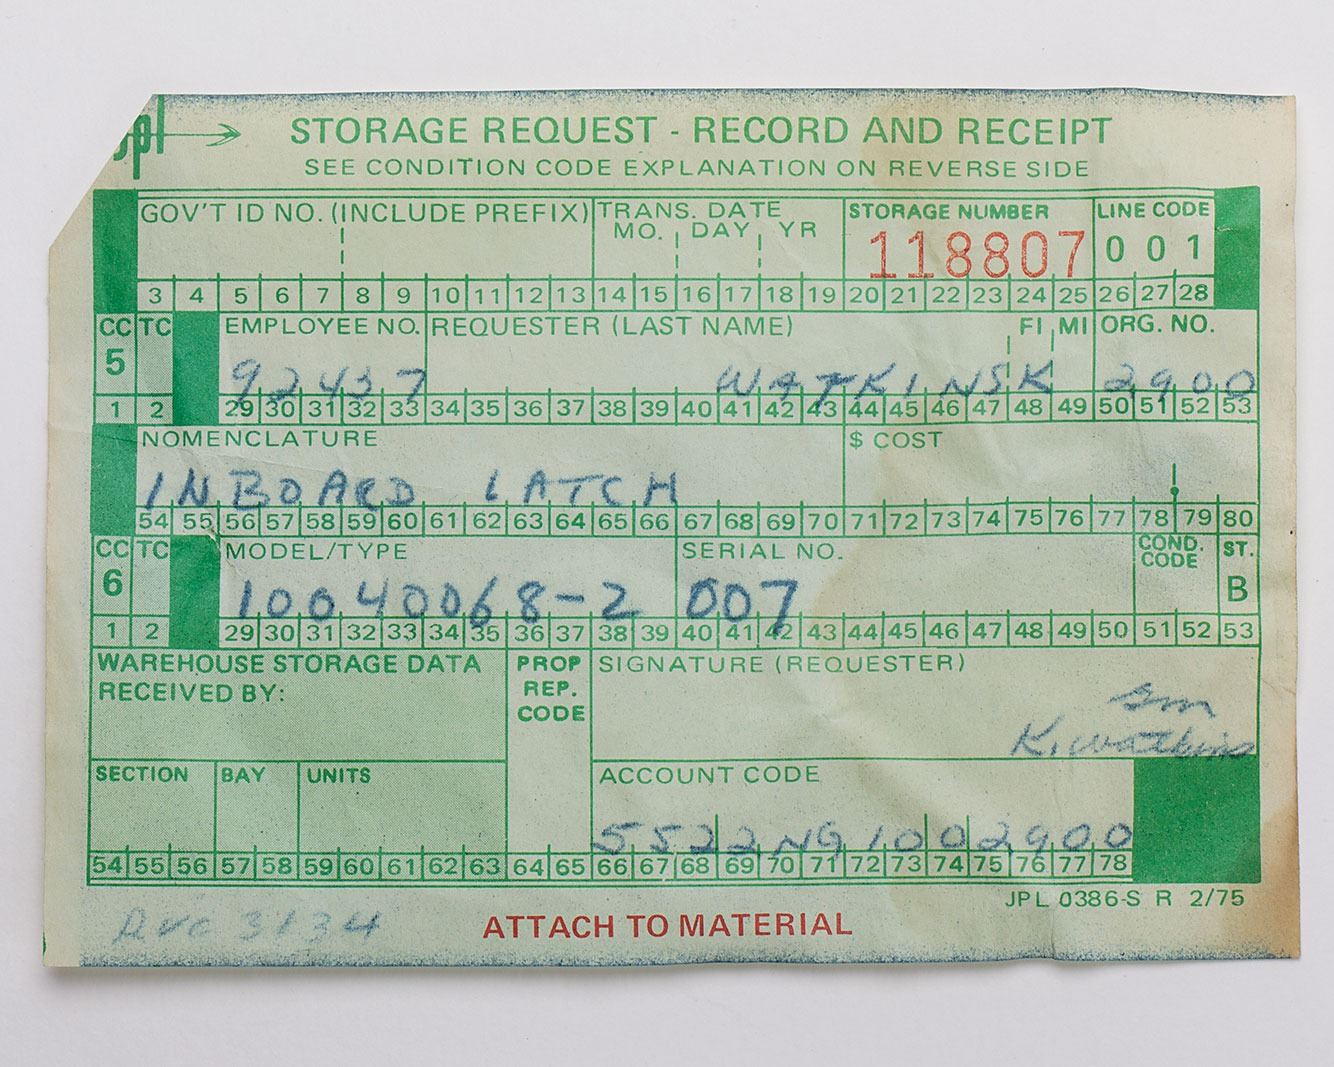 jpl STORAGE REQUEST - RECORD AND RECEIPT
SEE CONDITION CODE EXPLANATION ON REVERSE SIDE
GOV'T ID NO. (INCLUDE PREFIX) TRANS. DATE STORAGE NUMBER LINE CODE
MO. DAY YR
118807 001
3 4 5 6 7 8 9 10 11 12 13 14 15 16 17 18 19 20 21 22 23 24 25 26 27 28
CC TC EMPLOYEE NO. REQUESTER (LAST NAME) FI MI ORG. NO.
5 92437 WATKINSK 2900
1 2 29 30 31 32 33 34 35 36 37 38 39 40 41 42 43 44 45 46 47 48 49 50 51 52 53
NOMENCLATURE $ COST
INBOARD LATCH
54 55 56 57 58 59 60 61 62 63 64 65 66 67 68 69 70 71 72 73 74 75 76 77 78 79 80
CC TC MODEL/TYPE SERIAL NO. COND. CODE ST.
6 10040068-2 007 B
1 2 29 30 31 32 33 34 35 36 37 38 39 40 41 42 43 44 45 46 47 48 49 50 51 52 53
WAREHOUSE STORAGE DATA PROP SIGNATURE (REQUESTER)
RECEIVED BY: REP.
CODE
K. Watkins
SECTION BAY UNITS ACCOUNT CODE
5522NG1002900
54 55 56 57 58 59 60 61 62 63 64 65 66 67 68 69 70 71 72 73 74 75 76 77 78
JPL 0386-S R 2/75
3134 ATTACH TO MATERIAL